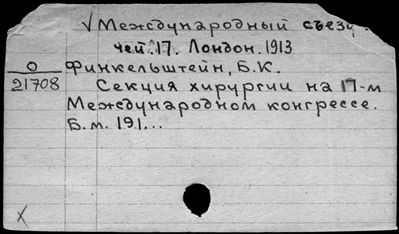 √ Международный съезд.
чей. 17. Лондон. 1913
О
21708
Финкельштейн, Б.К.
Секция хирургии на 17-м
Международном конгрессе.
Б.м. 191...
X